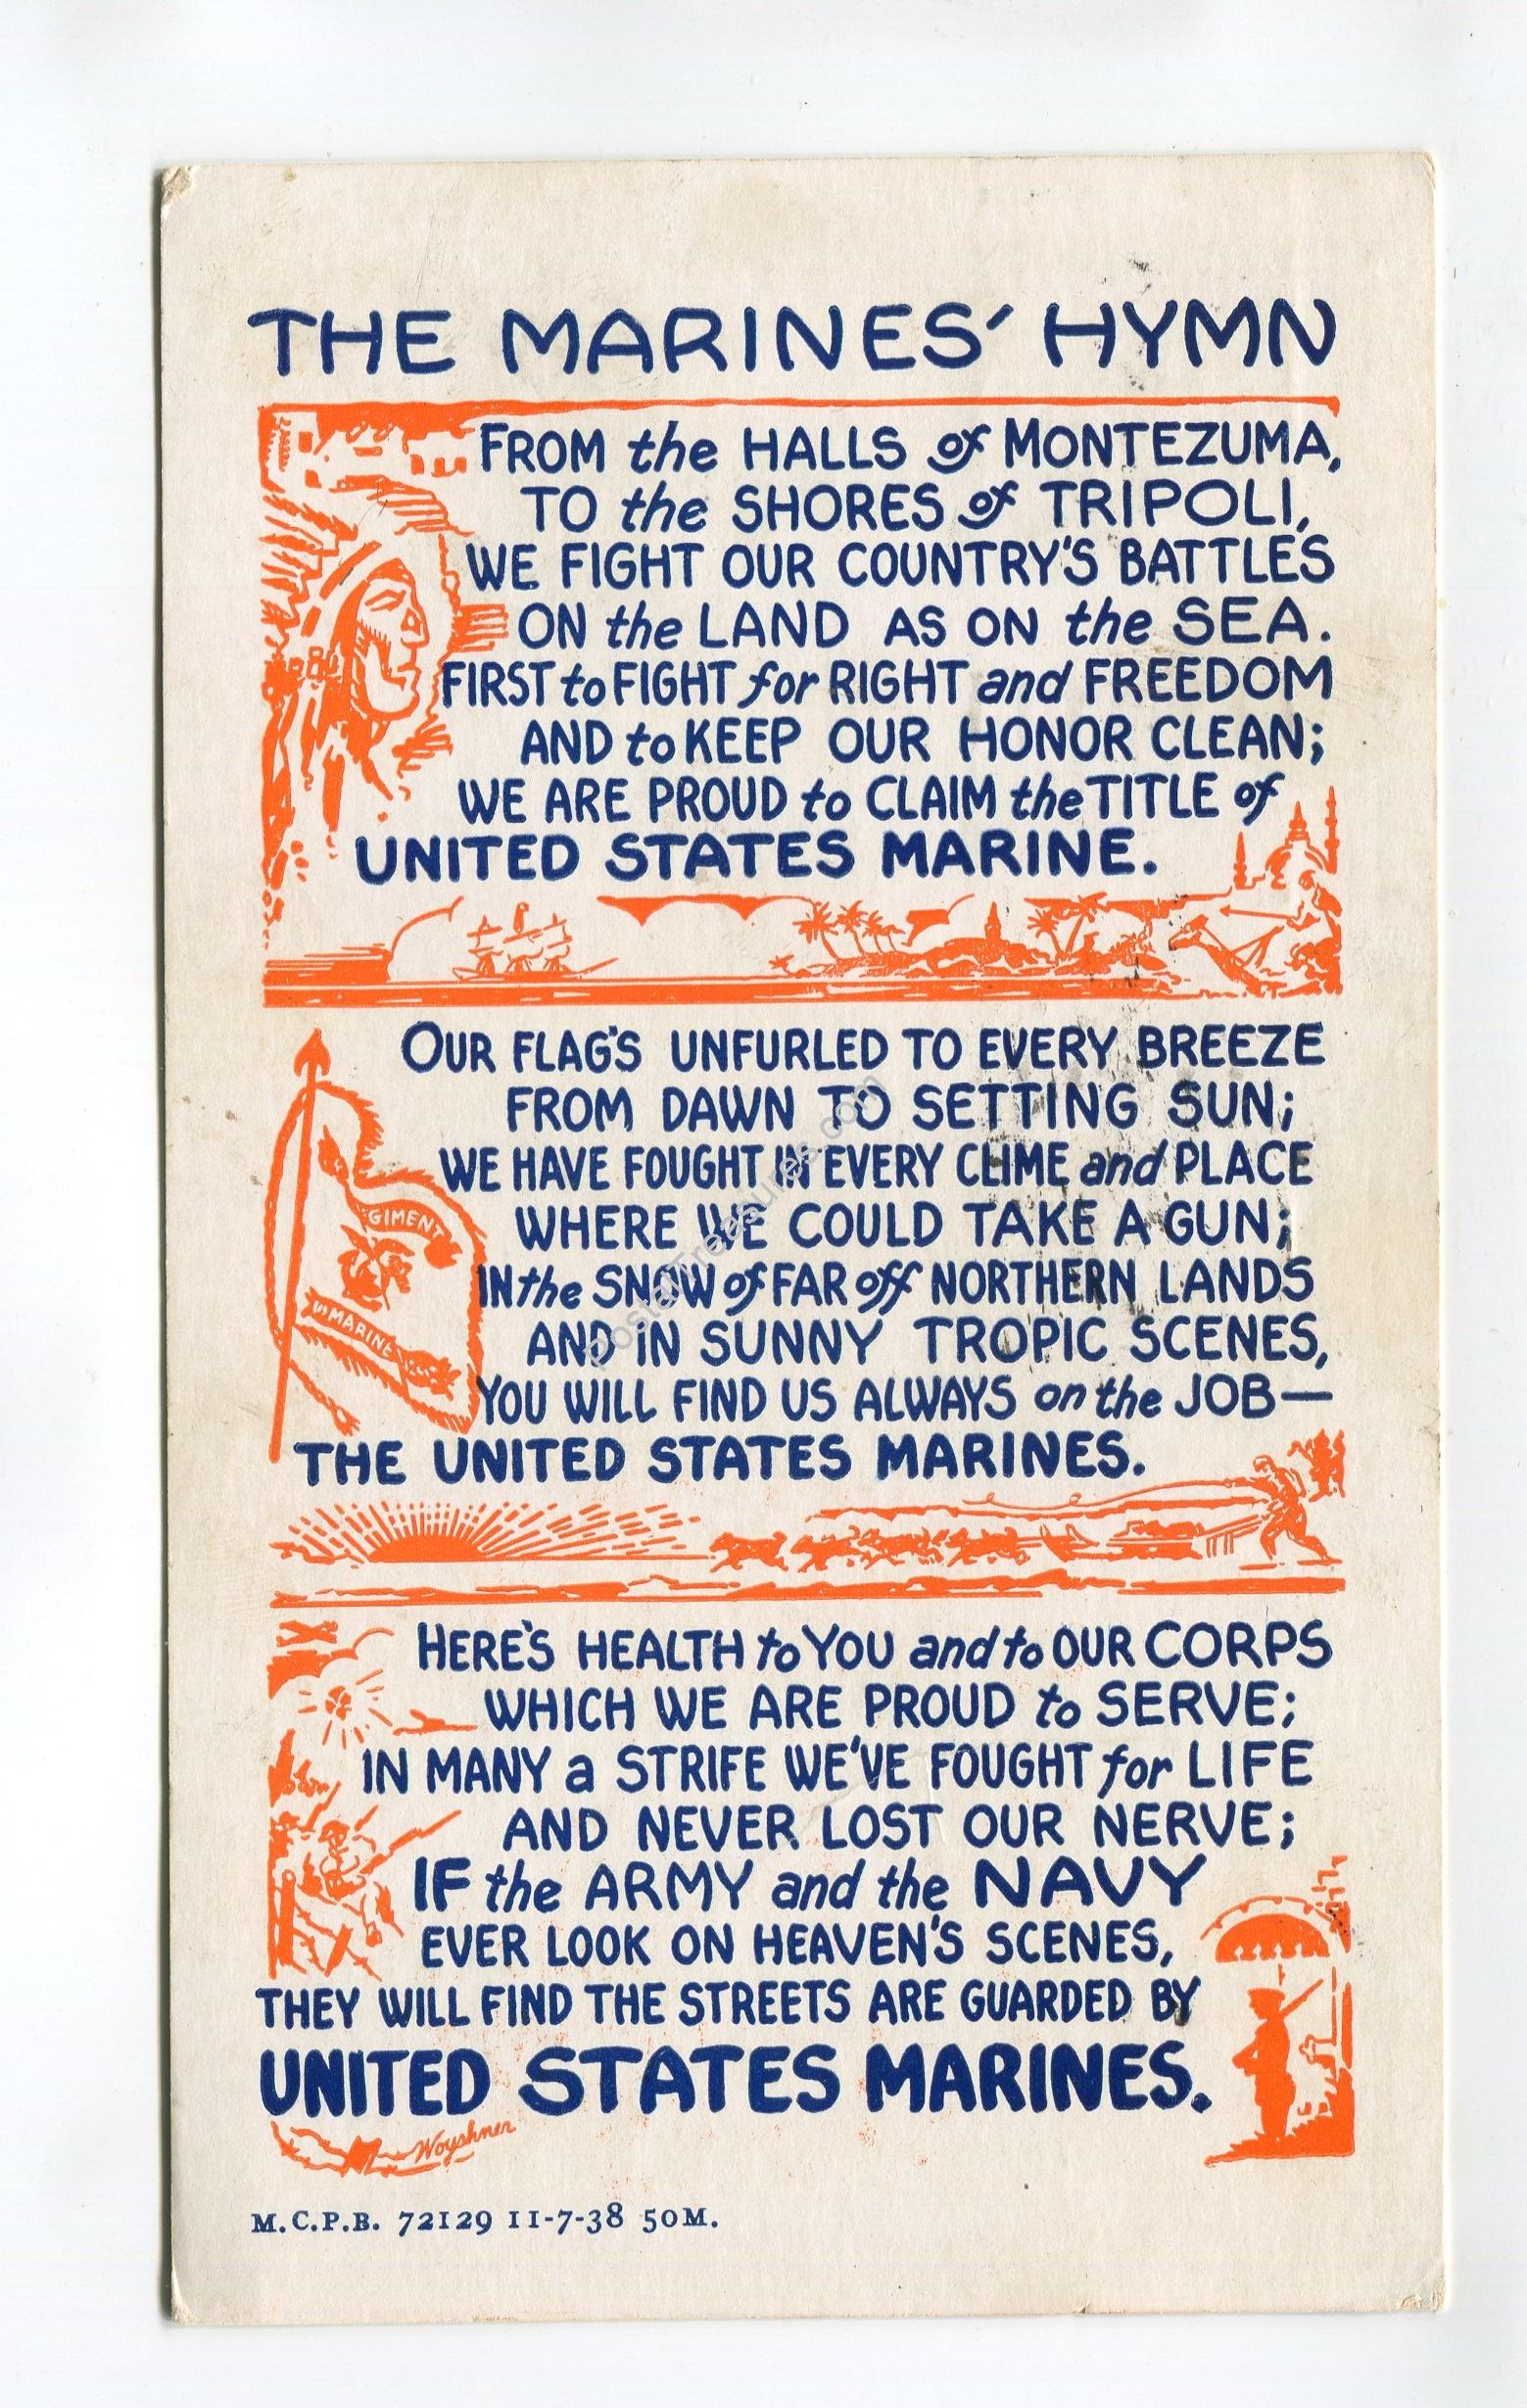 THE MARINES' HYMN
FROM the HALLS of MONTEZUMA,
TO the SHORES of TRIPOLI,
WE FIGHT OUR COUNTRY'S BATTLES
ON the LAND AS ON the SEA.
FIRST to FIGHT for RIGHT and FREEDOM
AND to KEEP OUR HONOR CLEAN;
WE ARE PROUD to CLAIM the TITLE of
UNITED STATES MARINE.
OUR FLAG'S UNFURLED TO EVERY BREEZE
FROM DAWN TO SETTING SUN;
WE HAVE FOUGHT IN EVERY CLIME and PLACE
WHERE WE COULD TAKE A GUN;
GIMENT
IN the SNOW of FAR off NORTHERN LANDS
US MARINE
AND IN SUNNY TROPIC SCENES,
YOU WILL FIND US ALWAYS on the JOB—
THE UNITED STATES MARINES.
HERE'S HEALTH to YOU and to OUR CORPS
WHICH WE ARE PROUD to SERVE;
IN MANY a STRIFE WE'VE FOUGHT for LIFE
AND NEVER LOST OUR NERVE;
IF the ARMY and the NAVY
EVER LOOK ON HEAVEN'S SCENES,
THEY WILL FIND THE STREETS ARE GUARDED BY
UNITED STATES MARINES.
Woyshner
M.C.P.B. 72129 11-7-38 50M.
PostalTreasures.com